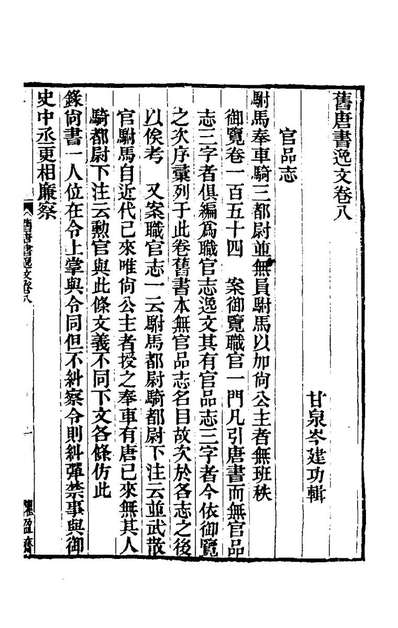 舊唐書逸文卷八
甘泉岑建功輯
官品志
駙馬奉車騎三都尉並無員駙馬以加尚公主者無班秩
御覽卷一百五十四　案御覽職官一門凡引唐書而無官品
志三字者俱編爲職官志逸文其有官品志三字者今依御覽
之次序彙列于此卷舊書本無官品志名目故次於各志之後
以俟考　又案職官志一云駙馬都尉騎都尉下注云並武散
官駙馬自近代已來唯尚公主者授之奉車有唐已來無其人
騎都尉下注云勲官與此條文義不同下文各條仿此
錄尚書一人位在令上掌與令同但不糾察令則糾彈禁事與御
史中丞更相廉察
舊唐書逸文卷八
一
懼盈齋